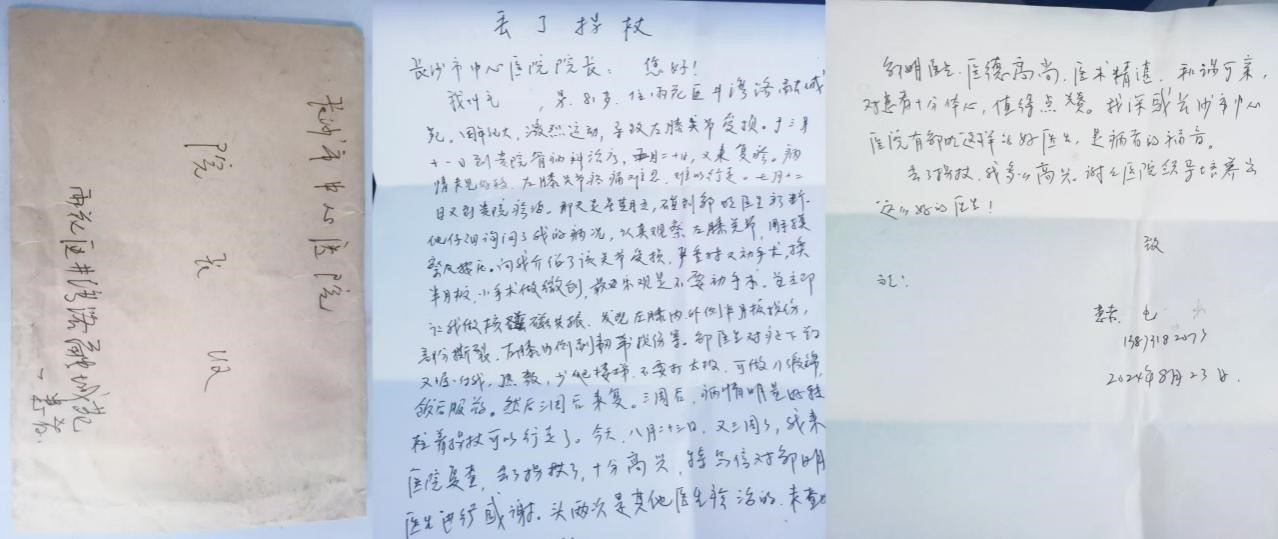 长沙市中心医院
院长 收
雨花区井湾路融城苑
一患者
丢了拐杖
长沙市中心医院院长: 您好!
我叫 , 男, 81岁, 住雨花区井湾路融城
苑。因年纪大, 激烈运动, 导致左膝关节受损。于三月
十一日到贵院骨伤科治疗, 月二十日, 又来复诊。病
情未见好转, 左膝关节疼痛难忍, 难以行走。七月十二
日又到贵院诊治。那天是星期五, 碰到邹明医生诊断。
他仔细询问了我的病况, 认真观察左膝关节, 用手摸
按压。向我介绍了该关节受损, 严重时又动手术, 换
半月板, 小手术做微创, 最乐观是不要动手术。并立即
让我做核磁共振, 发现左膝内外侧半月板损伤,
部分撕裂, 左膝内侧副韧带损伤等。邹医生对症下药
又嘱咐我, 热敷, 少爬楼梯, 不要打太极, 可做八段锦,
饭后服药。然后三周后来复。三周后, 病情明显好转
拄着拐杖可以行走了。今天, 八月二十三日, 又三周了, 我来
医院复查, 丢了拐杖了, 十分高兴, 特写信对邹明
医生进行感谢。头两次是其他医生诊治的, 未查出
邹明医生, 医德高尚, 医术精湛, 和谒可亲,
对患者十分体心, 值得点赞。我深感长沙市中心
医院有邹明这样的好医生, 是病者的福音。
丢了拐杖, 我多么高兴。谢谢医院领导培养出
这么好的医生!
致
礼:
患者
2024年8月23日.